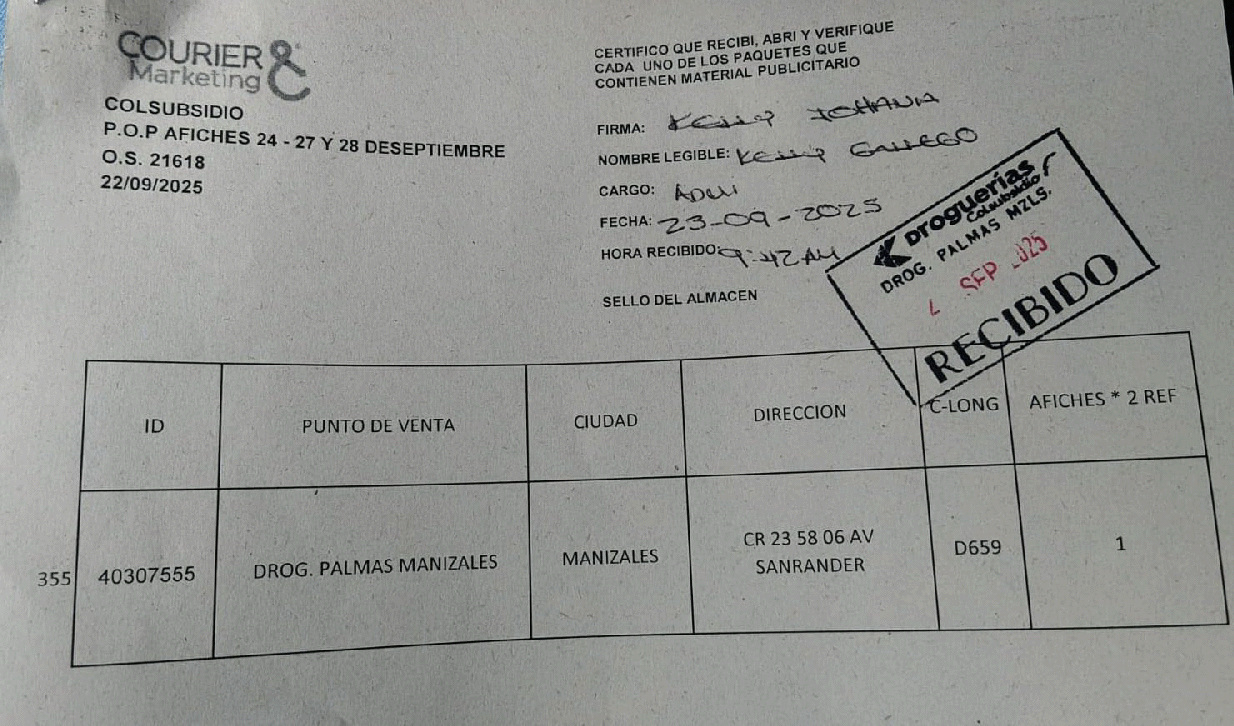 COURIER &
Marketing
COLSUBSIDIO
P.O.P AFICHES 24 - 27 Y 28 DESEPTIEMBRE
O.S. 21618
22/09/2025
CERTIFICO QUE RECIBI, ABRI Y VERIFIQUE
CADA UNO DE LOS PAQUETES QUE
CONTIENEN MATERIAL PUBLICITARIO
FIRMA: Kelly JOHANA
NOMBRE LEGIBLE: Kelly GALLEGO
CARGO:
FECHA: 23-09-2025
HORA RECIBIDO: 9:42 AM
SELLO DEL ALMACEN
Droguerías
Colsubsidio
DROG. PALMAS MZLS.
SEP
RECIBIDO
ID PUNTO DE VENTA CIUDAD DIRECCION C-LONG AFICHES * 2 REF
355 40307555 DROG. PALMAS MANIZALES MANIZALES CR 23 58 06 AV D659 1
SANRANDER